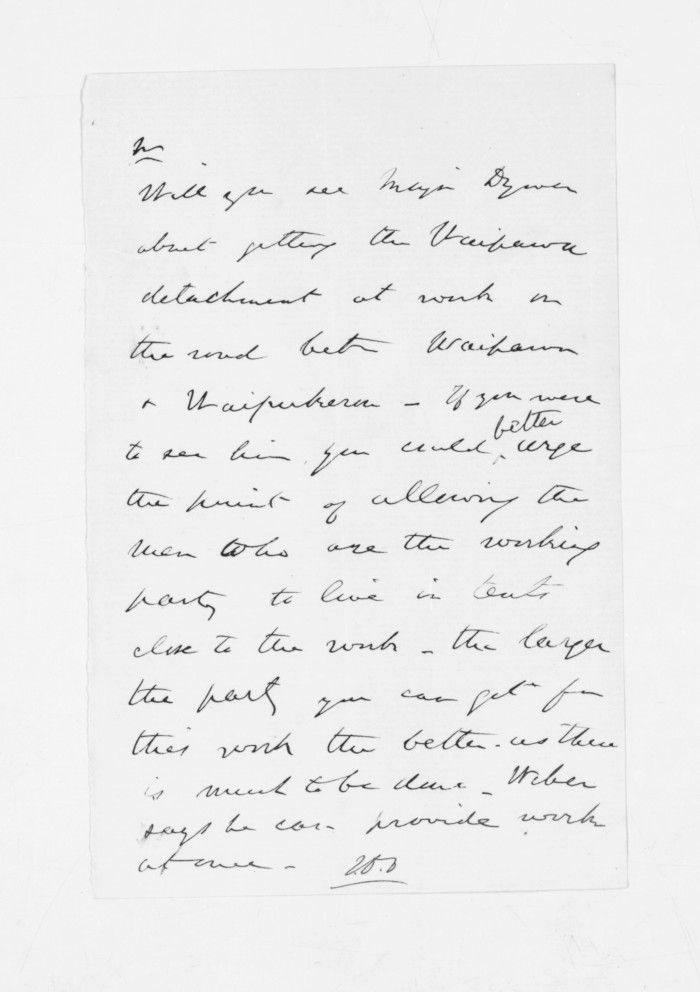 Will you see Major
about getting the Waipawa
detachment at work on
the road betn Waipawa
& Waipukurau – If you were
to see him you could better urge
the point of allowing the
men who are the working
party to live in tents
close to the work – the larger
the party you can get for
this work the better – as there
is much to be done – Weber
says he can provide work
at once –